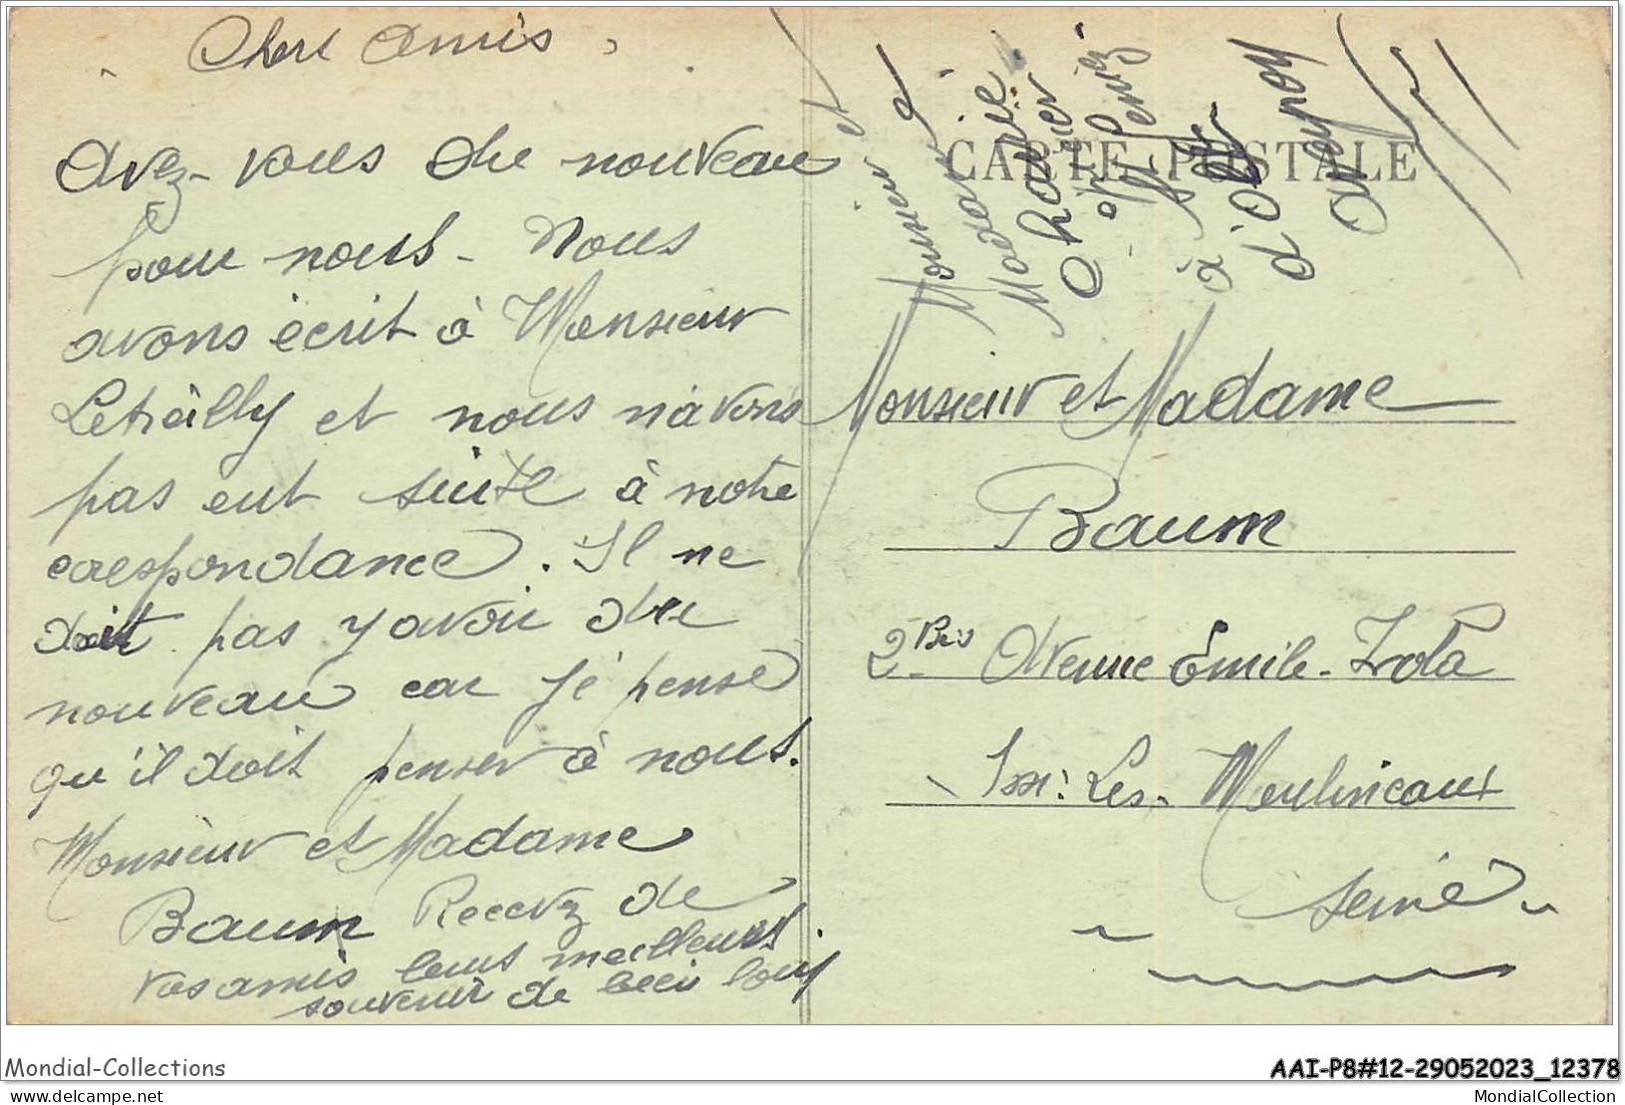 Chers Amis,
Avez-vous du nouveau
pour nous. Nous
avons écrit à Monsieur
Letréilly et nous n'avons
pas eut suite à notre
corespondance. Il ne
doit pas y avoir du
nouveau car je pense
qu'il doit penser à nous.
Monsieur et Madame
Baum Recevez de
vos amis leurs meilleurs
souvenir de
CARTE POSTALE
Monsieur et
Madame
à
d'
Monsieur et Madame
Baum
2 Bis Avenue Emile-Zola
Issi-Les-Moulineaux
Seine
Mondial-Collections
AAI-P8#12-29052023_12378
delcampe.net
MondialCollection